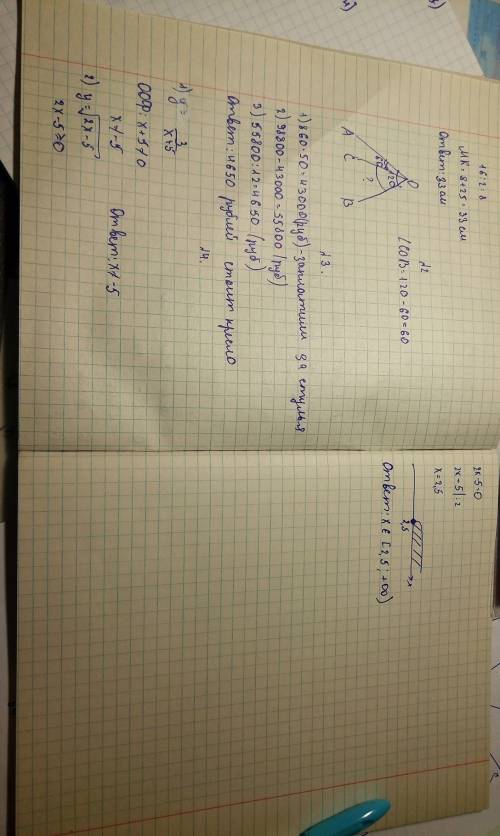 16:2=8
МК=8+25=33 см
Ответ: 33 см
№2
A
C
O
B
60
120
?
∠COB=120-60=60
№3.
1) 860·50=43000(руб)-заплатили за стулья
2) 98800-43000=55800 (руб)
3) 55800:12=4650 (руб)
Ответ: 4650 рублей стоит кресло
№4.
1) y = 3/(x+5)
ООФ: x+5≠0
x≠-5
Ответ: x≠-5
2) y=√2x-5
2x-5≥0
2x-5=0
2x=5|:2
x=2,5
2,5
x
Ответ: x ∈ [2,5; +∞)